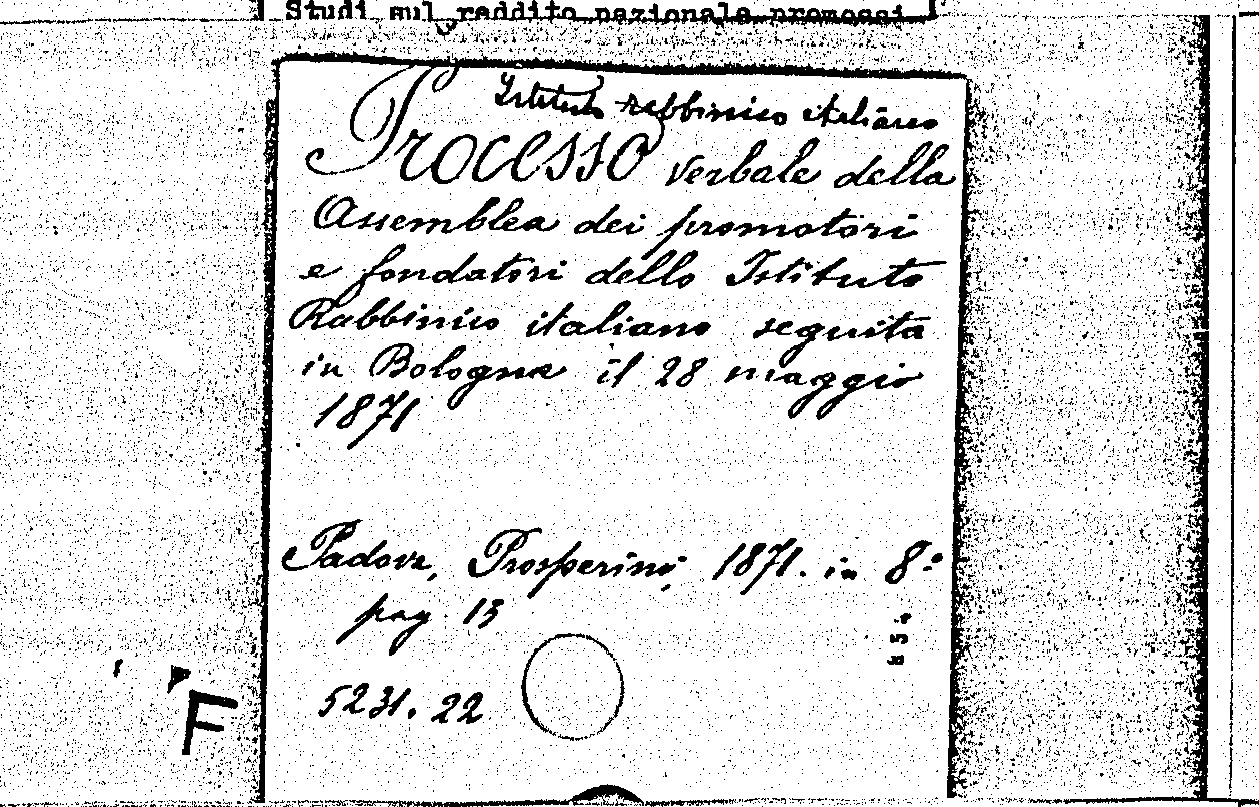 Studi sul reddito nazionale promossi
Istituto rabbinico italiano
Processo verbale della
Assemblea dei promotori
e fondatori dello Istituto
Rabbinico italiano seguita
in Bologna il 28 maggio
1871
Padova, Prosperini, 1871. in 8.º
pag. 13
5231.22
F